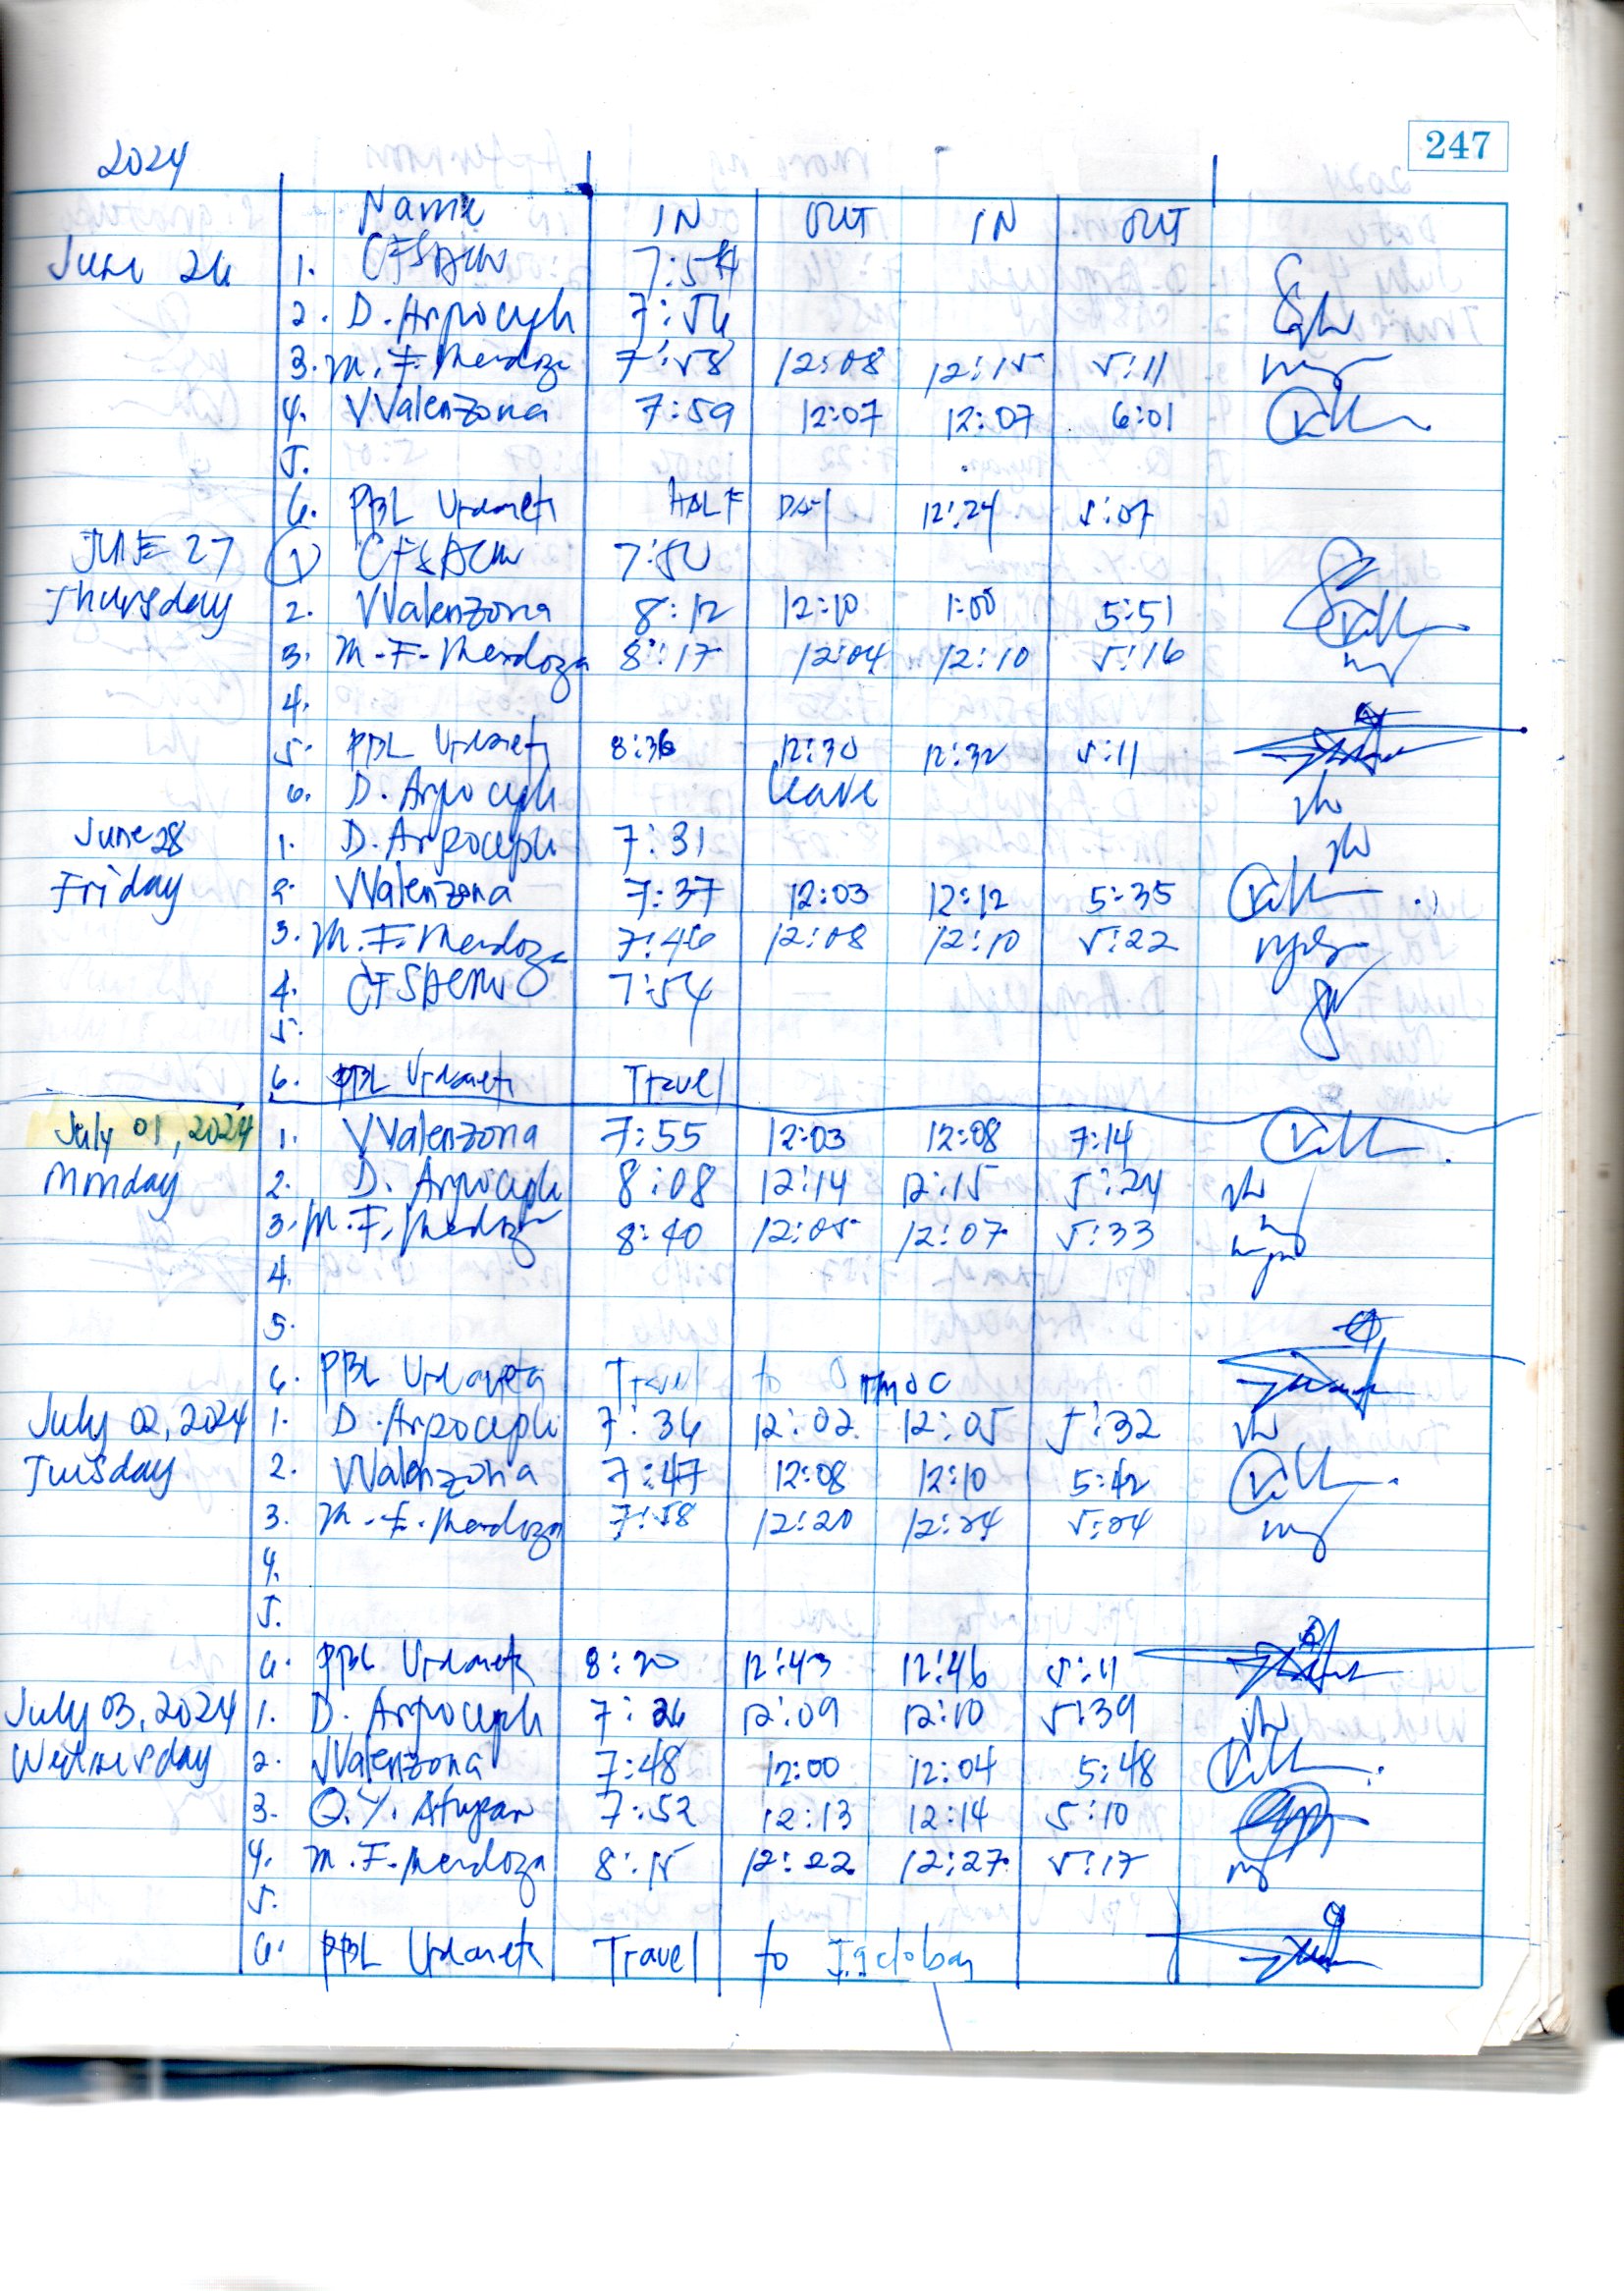 247
2024
Name IN OUT IN OUT
June 26 1. 7:54
2. D. 7:56
3. M. F. Mendoza 7:58 12:08 12:15 5:11
4. VValenzona 7:59 12:07 12:07 6:01
5.
6. PBL Urdaneta HALF DAY 12:24 5:07
JUNE 27 1 7:50
Thursday 2. VValenzona 8:12 12:10 1:00 5:51
3. M. F. Mendoza 8:17 12:04 12:10 5:16
4.
5. PBL Urdaneta 8:36 12:30 12:32 5:11
6. D. leave
June 28 1. D. 7:31
Friday 2. VValenzona 7:37 12:03 12:12 5:35
3. M. F. Mendoza 7:46 12:08 12:10 5:22
4. 7:54
5.
6. PBL Urdaneta Travel
July 01, 2024 1. VValenzona 7:55 12:03 12:08 7:14
Monday 2. D. 8:08 12:14 12:15 5:24
3. M. F. Mendoza 8:40 12:05 12:07 5:33
4.
5.
6. PBL Urdaneta Travel to Ormoc
July 02, 2024 1. D. 7:36 12:02 12:05 5:32
Tuesday 2. VValenzona 7:47 12:08 12:10 5:42
3. M. F. Mendoza 7:58 12:20 12:24 5:24
4.
5.
6. PBL Urdaneta 8:20 12:43 12:46 5:11
July 03, 2024 1. D. 7:26 12:09 12:10 5:39
Wednesday 2. VValenzona 7:48 12:00 12:04 5:48
3. Q.Y. 7:52 12:13 12:14 5:10
4. M. F. Mendoza 8:15 12:22 12:27 5:17
5.
6. PBL Urdaneta Travel to Tacloban